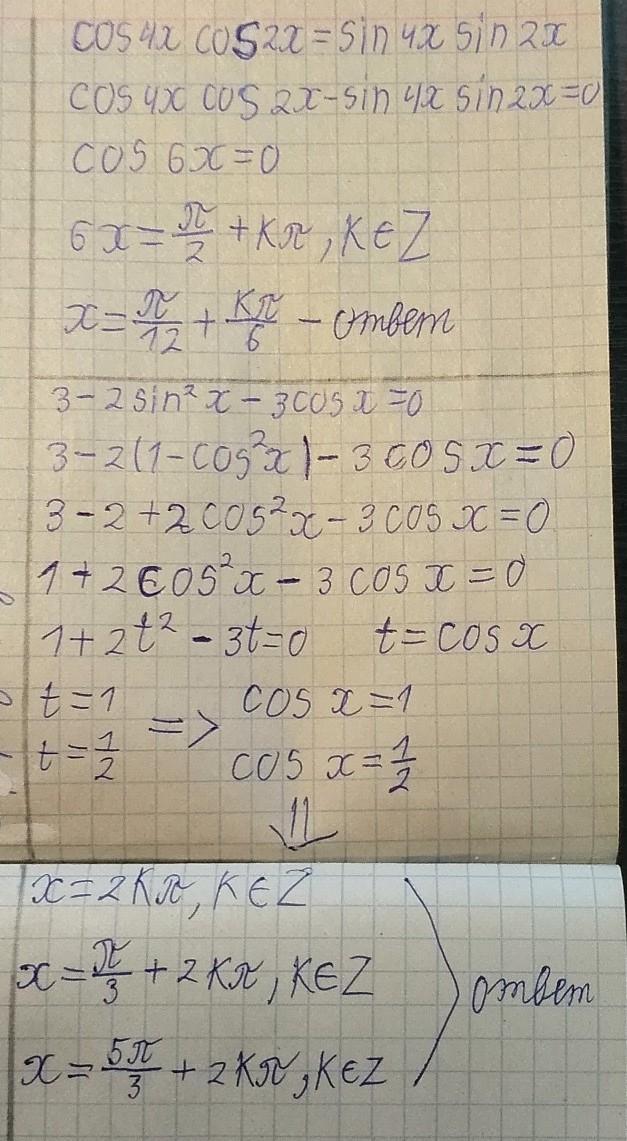 cos 4x cos 2x = sin 4x sin 2x
cos 4x cos 2x - sin 4x sin 2x = 0
cos 6x = 0
6x = π/2 + Kπ, K ∈ Z
x = π/12 + Kπ/6 - ответ
3 - 2 sin² x - 3 cos x = 0
3 - 2(1 - cos² x) - 3 cos x = 0
3 - 2 + 2 cos² x - 3 cos x = 0
1 + 2 cos² x - 3 cos x = 0
1 + 2t² - 3t = 0 t = cos x
t = 1 => cos x = 1
t = 1/2 cos x = 1/2
⇓
x = 2Kπ, K ∈ Z
x = π/3 + 2Kπ, K ∈ Z ответ
x = 5π/3 + 2Kπ, K ∈ Z